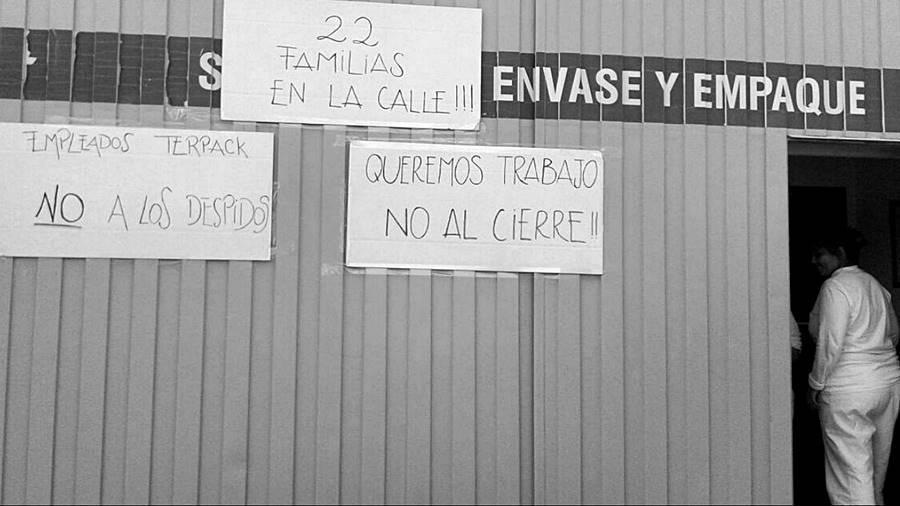 22
FAMILIAS
EN LA CALLE!!!!
S ENVASE Y EMPAQUE
EMPLEADOS TERPACK
NO A LOS DESPIDOS
QUEREMOS TRABAJO
NO AL CIERRE!!